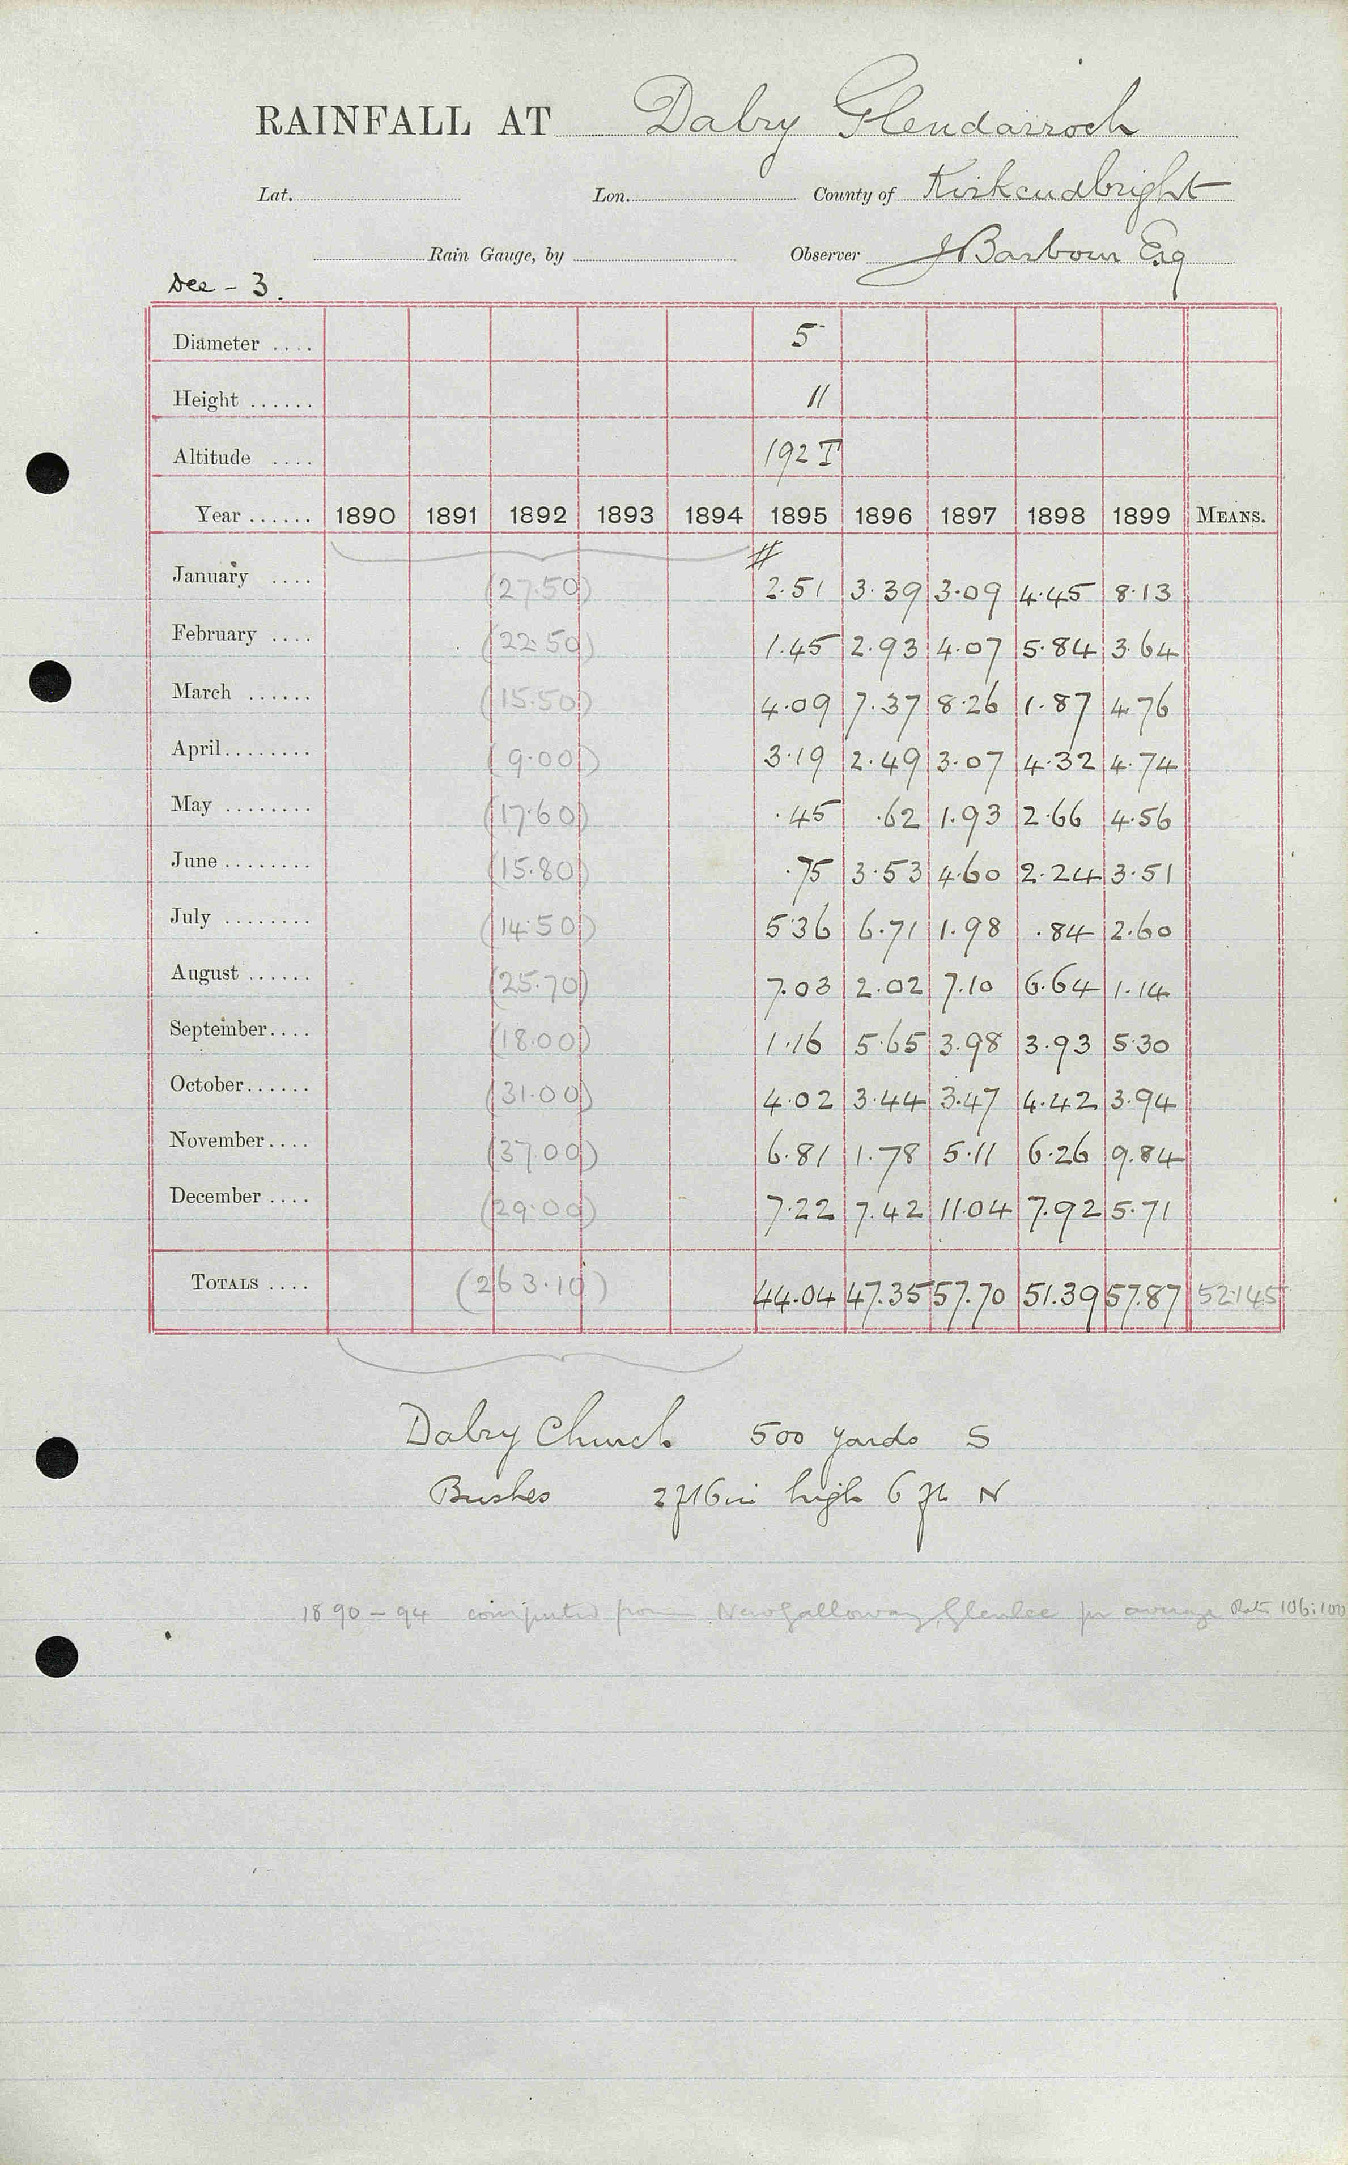 RAINFALL AT Dalry Glendarroch
Lat. Lon. County of Kirkcudbright
Rain Gauge, by Observer J Barbour Esq
Dee - 3.
Diameter .... 5
Height ...... 11
Altitude .... 192 T
Year ...... 1890 1891 1892 1893 1894 1895 1896 1897 1898 1899 MEANS.
#
January .... (27.50) 2.51 3.39 3.09 4.45 8.13
February .... (22.50) 1.45 2.93 4.07 5.84 3.64
March ...... (15.50) 4.09 7.37 8.26 1.87 4.76
April........ (9.00) 3.19 2.49 3.07 4.32 4.74
May ........ (17.60) .45 .62 1.93 2.66 4.56
June ........ (15.80) .75 3.53 4.60 2.24 3.51
July ........ (14.50) 5.36 6.71 1.98 .84 2.60
August ...... (25.70) 7.03 2.02 7.10 6.64 1.14
September.... (18.00) 1.16 5.65 3.98 3.93 5.30
October...... (31.00) 4.02 3.44 3.47 4.42 3.94
November.... (37.00) 6.81 1.78 5.11 6.26 9.84
December .... (29.00) 7.22 7.42 11.04 7.92 5.71
TOTALS .... (263.10) 44.04 47.35 57.70 51.39 57.87 52.145
Dalry Church 500 yards S
Bushes 2ft 6in high 6 ft N
1890-94 computed from New Galloway, Glenlee pr average Ratio 106:100